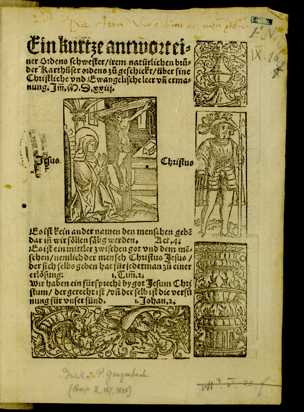 Ein kurtze antwort ei⸗
ner Ordens schwester/irem natürlichen brü⸗
der Karthüser ordens zů geschickt/über sine
Christliche vnd Ewangelische leer vñ erma⸗
nung. Im M.D.XXiij.
Jesus Christus
Es ist kein ander namen den menschen gebē
dar in wir söllen sälig werden. Act.4.
Es ist ein mitler zwischen got vnd dem mē⸗
schen/nemlich der mensch Christus Jesus/
der sich selbs geben hat für jederman zů einer
erlösung. 1.Tim.2.
Wir haben ein fürsprechē by got Jesum Chri
stum/der gerecht ist/vñ der selb ist die versü
nung für vnser sünd. 1.Johan.2.